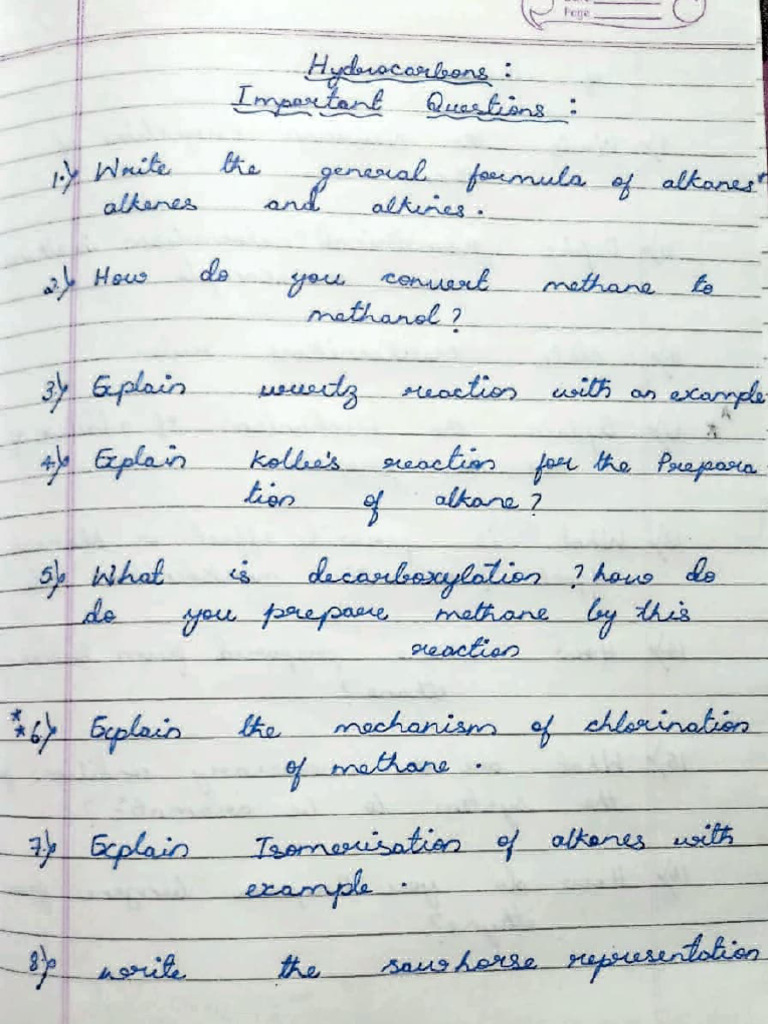 Page
Hydrocarbons :
Important Questions :
1.) Write the general formula of alkanes,
alkenes and alkines.
2.) How do you convert methane to
methanol?
3.) Explain wurtz reaction with an example
4.) Explain Kolbe's reaction for the Prepara
tion of alkane?
5.) What is decarboxylation? how do
do you prepare methane by this
reaction
**6.) Explain the mechanism of chlorination
of methane.
7.) Explain Isomerisation of alkanes with
example.
8.) write the sawhorse representation